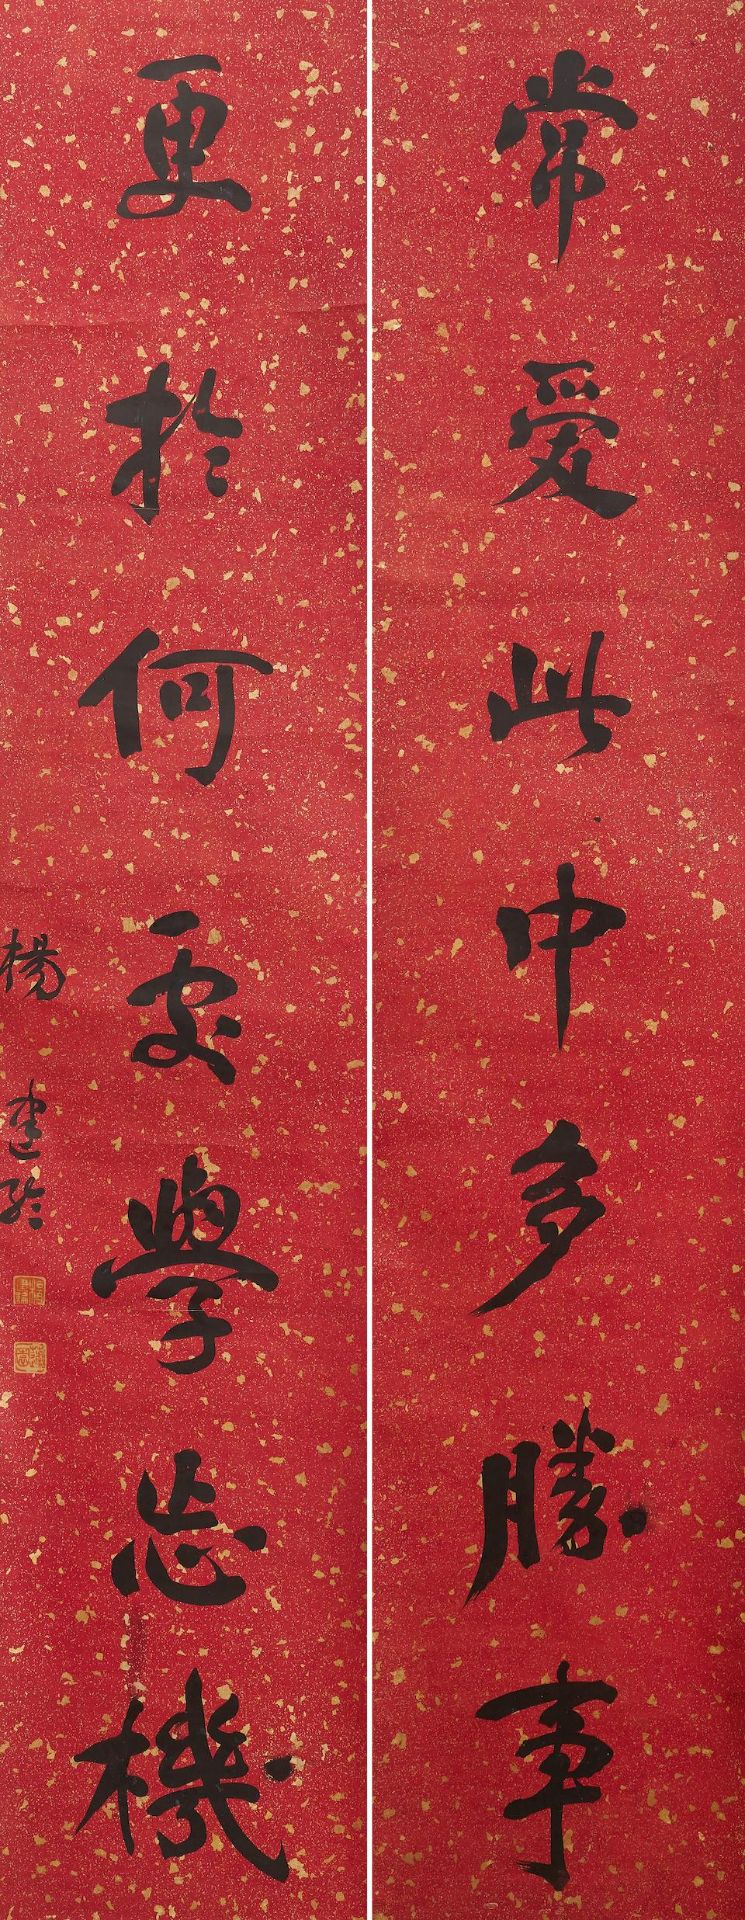 常愛此中多勝事
更於何處學忘機
楊